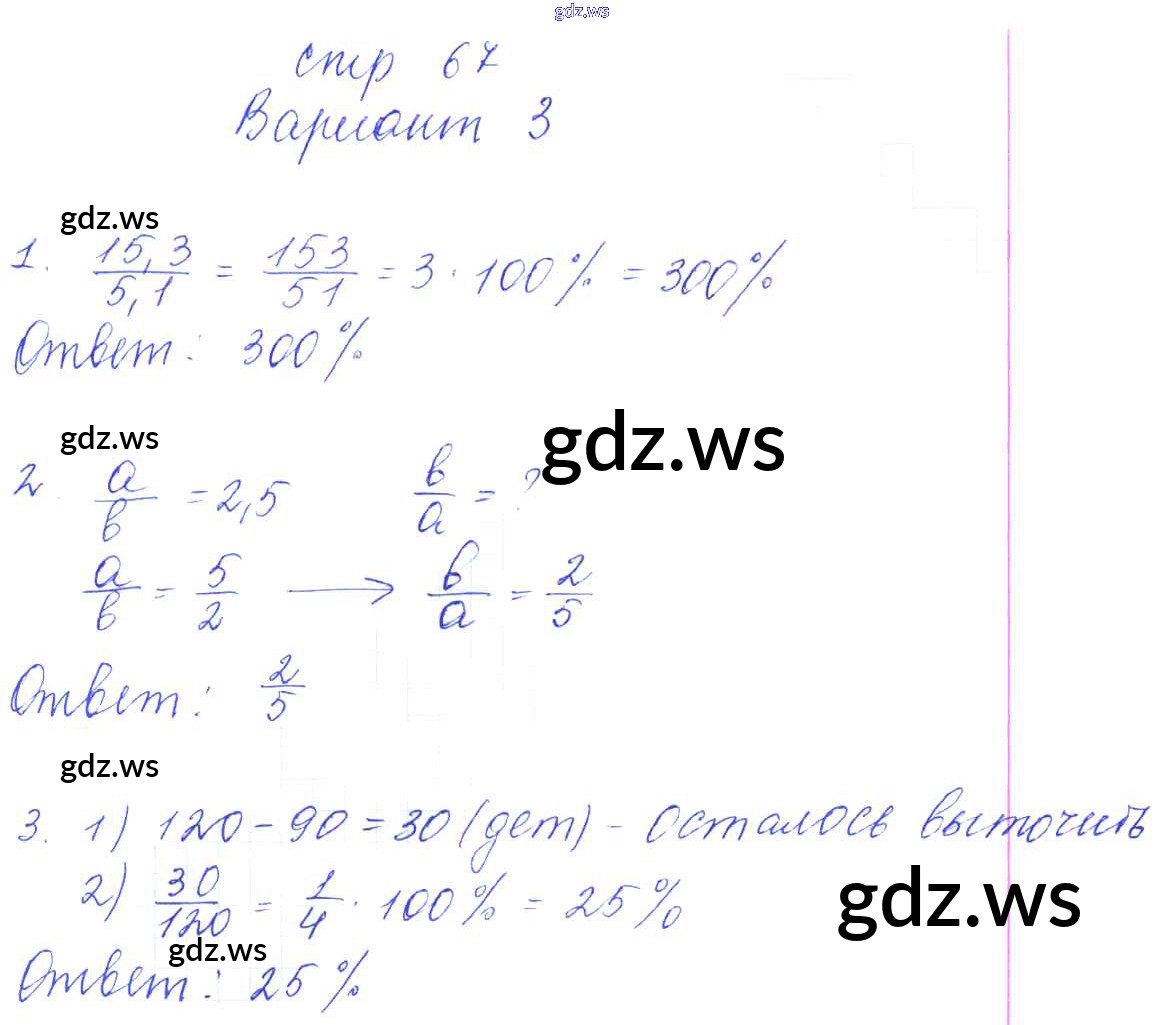 gdz.ws
стр 67
Вариант 3
gdz.ws
1. 15,3/5,1 = 153/51 = 3 · 100% = 300%
Ответ: 300%
gdz.ws
gdz.ws
2. a/b = 2,5 b/a = ?
a/b = 5/2 → b/a = 2/5
Ответ: 2/5
gdz.ws
3. 1) 120 - 90 = 30 (дет) - осталось выточить
2) 30/120 = 1/4 · 100% = 25%
gdz.ws
gdz.ws
Ответ: 25%